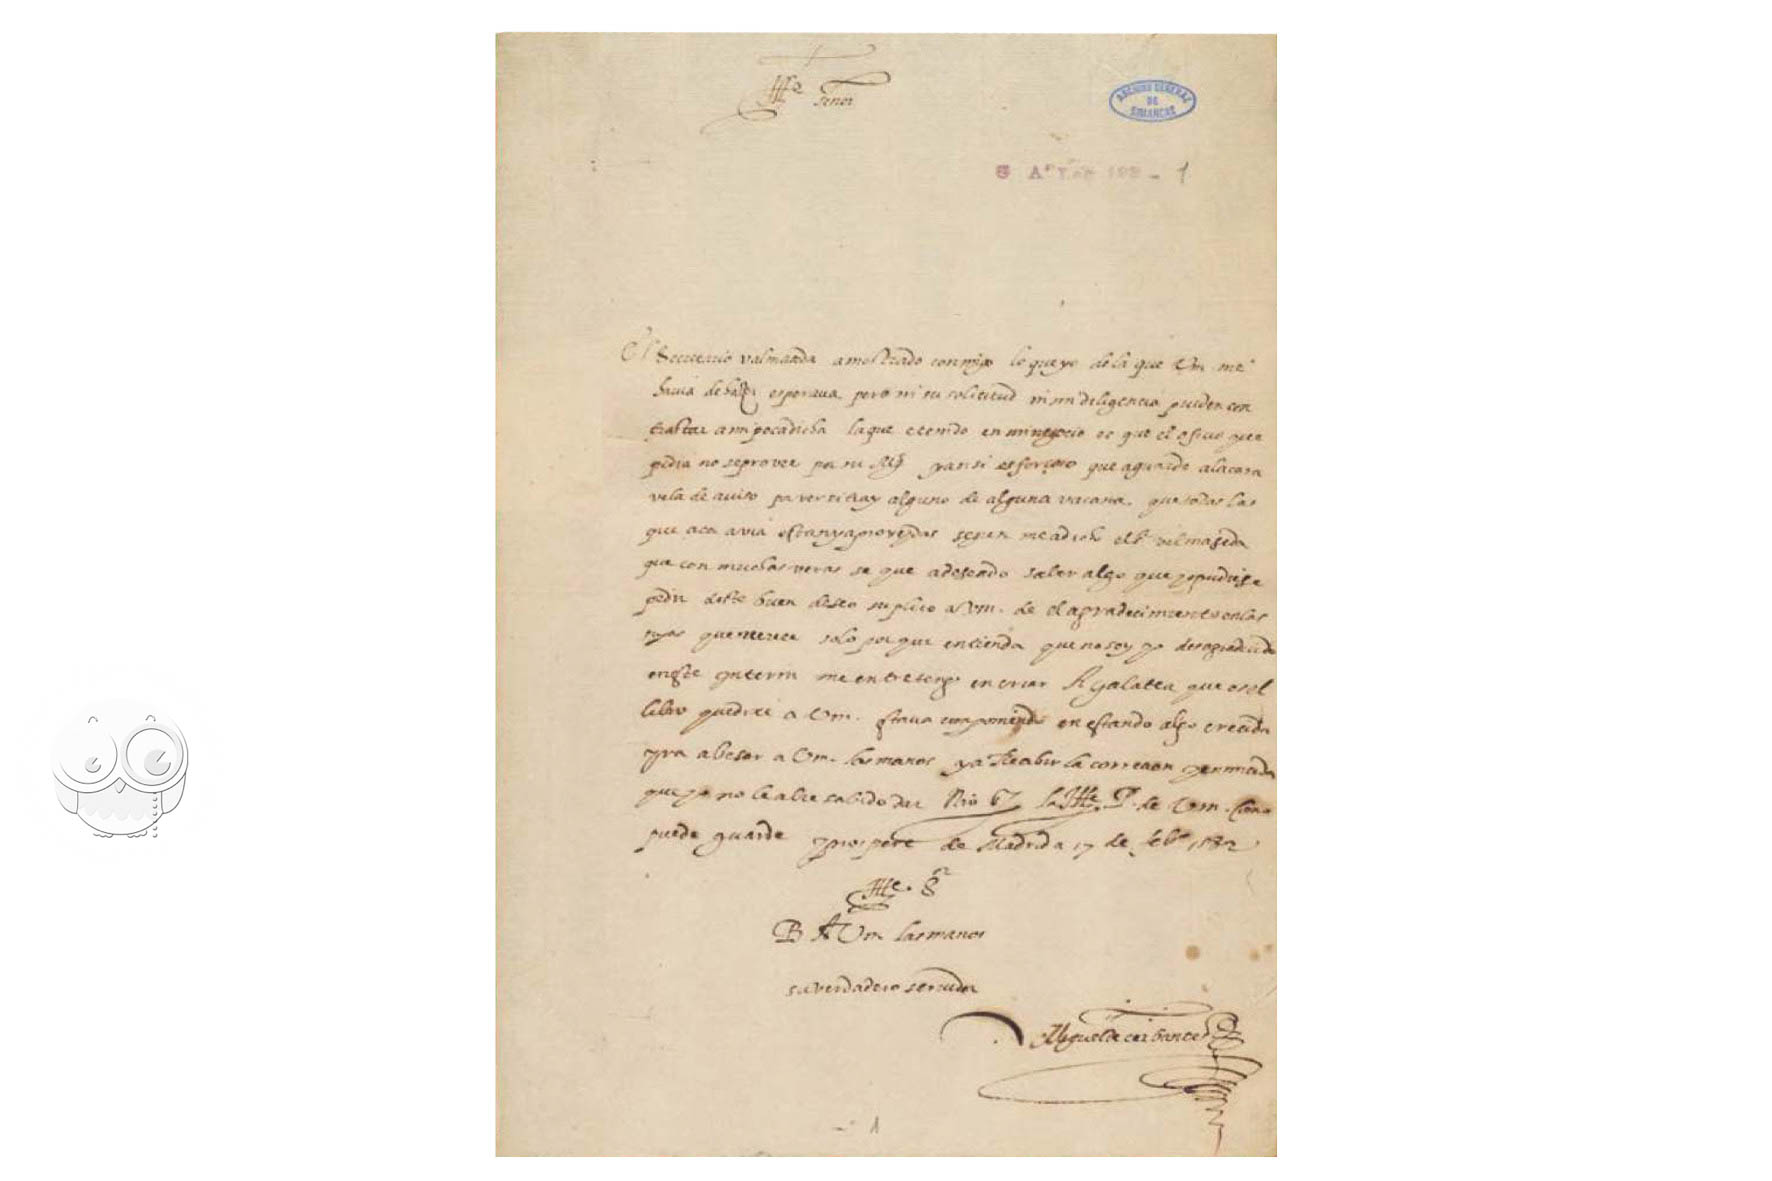 Ille señor
ARCHIVO GENERAL
DE
SIMANCAS
G Aª Leg 123 - 1
El Secretario valmaseda a mostrado conmigo lo que yo de la que Vm. me
havia de hazer esperava pero ni su solicitud ni mi diligencia pueden con
trastar a mi poca dicha la que e tenido en mi negocio es que el oficio que
pedia no se provee por su Mgd y ansi es forçoso que aguarde a la cara
vela de aviso por ver si tray alguno de alguna vacante que todas las
que aca avia estan ya proveydas segun me a dicho el sr valmaseda
que con muchas veras se que a deseado saber algo que yo pudiese
pedir deste buen deseo suplico a Vm. de el agradecimiento en las
suyas que merece solo porque entienda que no soy yo desagradecido
en este ynterin me entretengo en criar A galatea que es el
libro que dixe a Vm. estava componiendo en estando algo crecida
yra a besar a Vm. las manos y a Recebir la correcion y enmienda
que yo no le abre sabido dar Nro Sr la Ille P. de Vm. como
puede guarde y prospere de Madrid a 17 de febro 1582
Ille. Sr
B A Vm. las manos
su verdadero servidor
Miguel de cerbantes
1